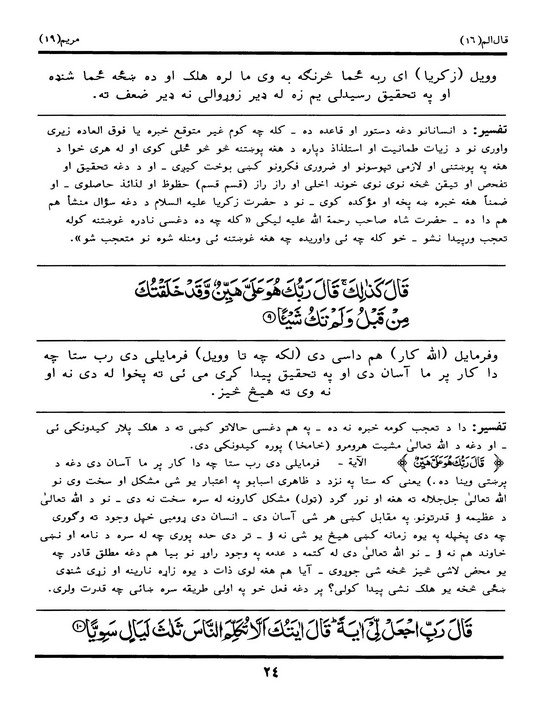 قال الم (١٦)
مریم (١٩)
وویل (زکریا) ای ربه ځما څرنگه به وی ما لره هلک او ده ښځه ځما شنډه
او په تحقیق رسیدلی یم زه له ډیر زوړوالی نه ډیر ضعف ته.
تفسیر: د انسانانو دغه دستور او قاعده ده ـ کله چه کوم غیر متوقع خبره یا فوق العاده زیری
واوری نو د زیات طمانیت او استلذاذ دپاره د هغه پوښتنه څو څو ځلی کوی او له هری خوا د
هغه په پوښتنی او لازمی تپوسونو او ضروری فکرونو کښی بوخت کیږی ـ او د دغه تحقیق او
تفحص او تیقن څخه نوی نوی خوند اخلی او راز راز (قسم قسم) حظوظ او لذائذ حاصلوی ـ او
ضمناً هغه خبره ښه پخه او مؤکده کوی ـ نو د حضرت زکریا علیه السلام د دغه سؤال منشأ هم
هم دا ده ـ حضرت شاه صاحب رحمة الله علیه لیکی «کله چه ده دغسی نادره غوښتنه کوله
تعجب ورپیدا نشو ـ خو کله چه ئی واوریده چه هغه غوښتنه ئی ومنله شوه نو متعجب شو».
قَالَ كَذٰلِكَ ۚ قَالَ رَبُّكَ هُوَ عَلَیَّ هَیِّنٌ وَّقَدْ خَلَقْتُكَ
مِنْ قَبْلُ وَلَمْ تَكُ شَیْئًا ۹
وفرمایل (الله کار) هم داسی دی (لکه چه تا وویل) فرمایلی دی رب ستا چه
دا کار پر ما آسان دی او په تحقیق پیدا کړی می ئی ته پخوا له دی نه او
نه وی ته هیڅ څیز.
تفسیر: دا د تعجب کومه خبره نه ده ـ په هم دغسی حالاتو کښی ته د هلک پلار کیدونکی ئی
ـ او دغه د الله تعالیٰ مشیت هرومرو (خامخا) پوره کیدونکی دی.
﴿ قَالَ رَبُّكَ هُوَ عَلَیَّ هَیِّنٌ ﴾ الآیة ـ فرمایلی دی رب ستا چه دا کار پر ما آسان دی دغه د
پرښتی وینا ده.) یعنی که ستا په نزد د ظاهری اسبابو په اعتبار یو شی مشکل او سخت وی نو
الله تعالیٰ جل‌جلاله ته هغه او نور گرد (ټول) مشکل کارونه له سره سخت نه دی ـ نو د الله تعالیٰ
د عظیمه ؤ قدرتونو په مقابل کښی هر شی آسان دی ـ انسان دی ړومبی خپل وجود ته وگوری
چه دی پخپله په یوه زمانه کښی هیڅ یو شی نه ؤ ـ تر دی حده پوری چه له سره د نامه او نښی
خاوند هم نه ؤ ـ نو الله تعالیٰ دی له کتمه د عدمه په وجود راوړ نو بیا هم دغه مطلق قادر چه
یو محض لاشی څیز څخه شی جوړوی ـ آیا هم هغه لوی ذات د یوه زاړه نارینه او زړی شنډی
ښځی څخه یو هلک نشی پیدا کولی؟ پر دغه فعل خو په اولی طریقه سره ښائی چه قدرت ولری.
قَالَ رَبِّ اجْعَلْ لِّیْ اٰیَةً ؕ قَالَ اٰیَتُكَ اَلَّا تُكَلِّمَ النَّاسَ ثَلٰثَ لَیَالٍ سَوِیًّا ۱۰
٢٤